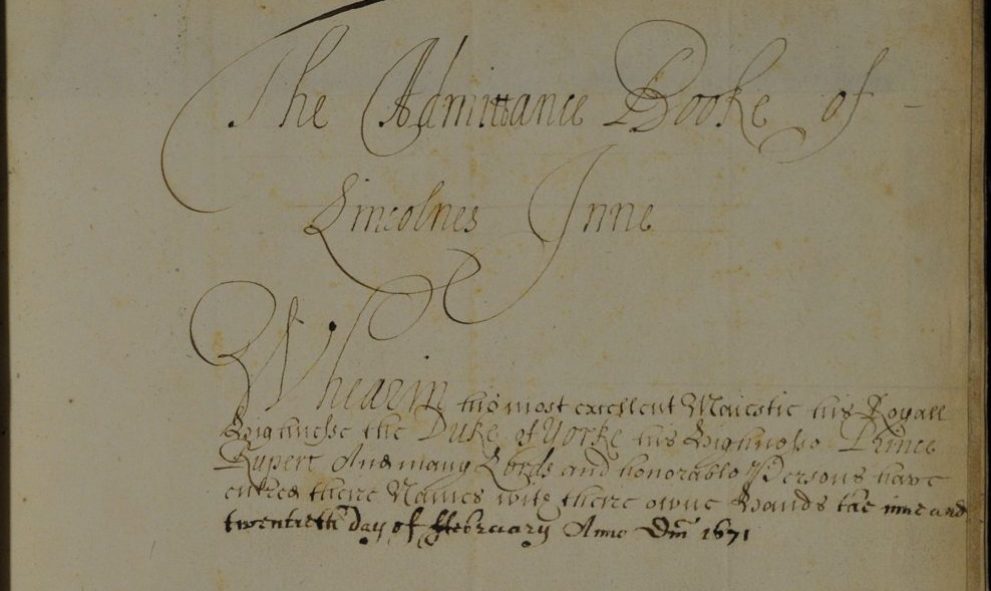 The Admittance Booke of
Lincolnes Inne
Whearin his most excellent Maiestie his Royall
Highnesse the Duke of Yorke his Highnesse Prince
Rupert And many Lords and honorable Persons have
entred there Names with there owne Hands the nine and
twentieth day of ffebruary Anno Dm̄ 1671